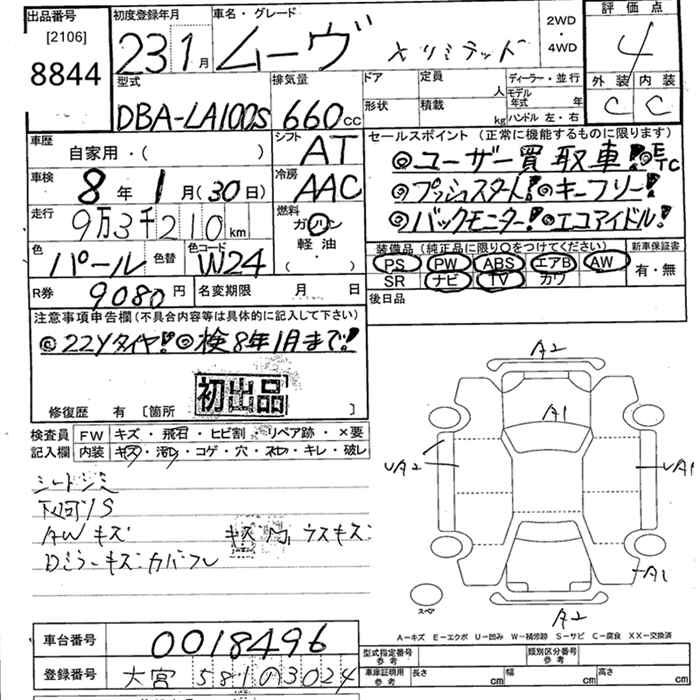 出品番号
[2106]
8844
初度登録年月
23 1月
車名・グレード
ムーヴ Xリミテッド
2WD
・
4WD
評価点
4
型式
DBA-LA100S
排気量
660cc
ドア
定員
人
形状
積載
kg
ディーラー・並行
モデル
年式 年
ハンドル 左・右
外装 内装
C C
車歴
自家用・( )
シフト
AT
セールスポイント (正常に機能するものに限ります)
◎ユーザー買取車! ◎ETC
◎プッシュスタート! ◎キーフリー!
◎バックモニター! ◎エコアイドル!
車検
8年 1月(30日)
冷房
AAC
走行
9万3千210km
燃料
ガソリン
軽油
( ・ )
色
パール
色替
色コード
W24
装備品(純正品に限り○をつけてください)
PS PW ABS エアB AW
SR ナビ TV カワ
新車保証書
有・無
R券 9080円
名変期限 月 日
後日品
注意事項申告欄(不具合内容等は具体的に記入して下さい)
◎22Yタイヤ! ◎検8年1月まで!
初出品
修復歴 有 [箇所 ]
検査員 FW キズ・飛石・ヒビ割・リペア跡・×要
記入欄 内装 キズ・汚レ・コゲ・穴・ネレ・キレ・破レ
シートシミ
下廻りS
AWキズ
Dミラーキズカバフレ
ウスキズ
A2
A1
UA2
UA1
A1
A2
スペア
A−キズ E−エクボ U−凹み W−補修跡 S−サビ C−腐食 XX−交換済
車台番号 0018496
登録番号 大宮 581 0 3024
型式指定番号
参考
類別区分番号
参考
車庫証明用
参考
長さ cm
幅 cm
高さ cm